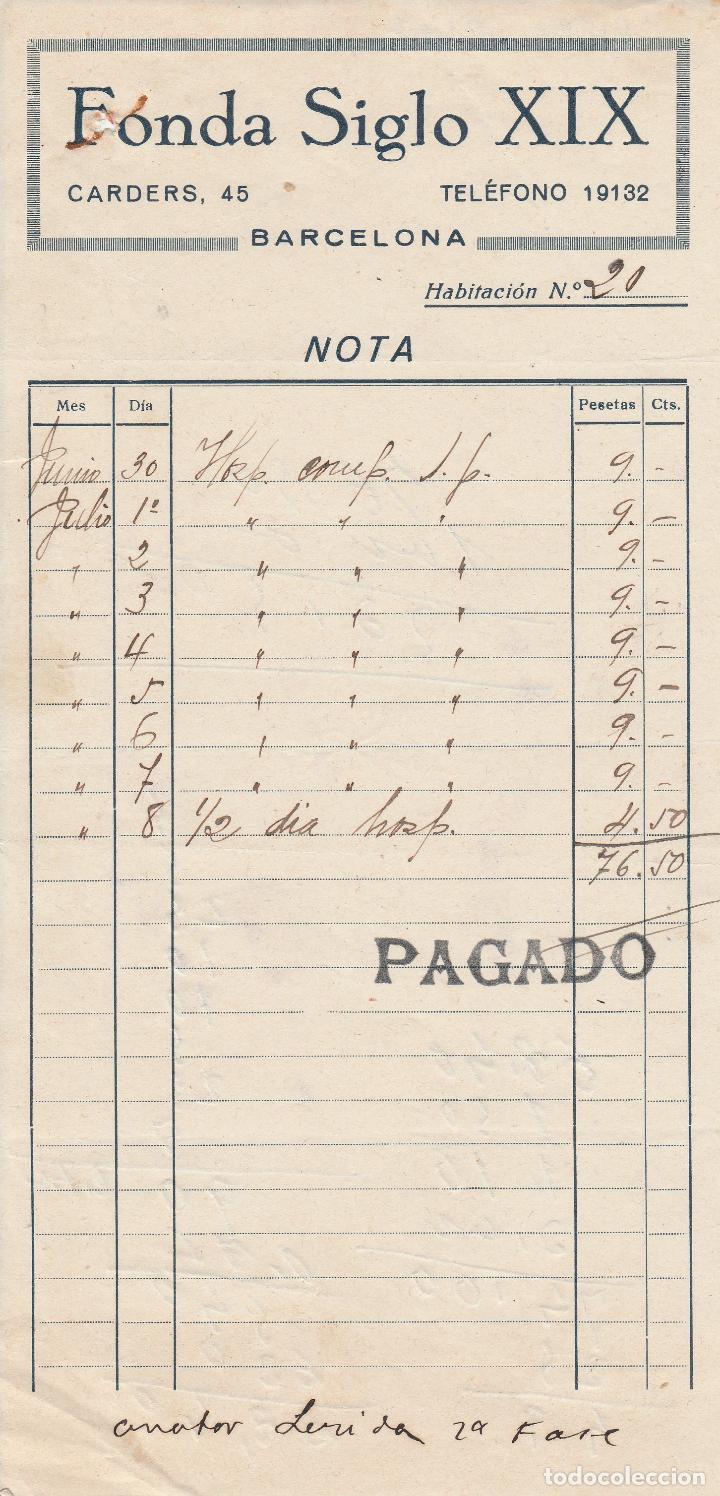 Fonda Siglo XIX
CARDERS, 45 TELÉFONO 19132
BARCELONA
Habitación N.º 20
NOTA
Mes Día Pesetas Cts.
Junio 30 Hosp. comp. 1. p. 9. -
Julio 1º " " " 9. -
" 2 " " " 9. -
" 3 " " " 9. -
" 4 " " " 9. -
" 5 " " " 9. -
" 6 " " " 9. -
" 7 " " " 9. -
" 8 1/2 dia hosp. 4.50
76.50
PAGADO
anotar Lerida 2ª Fase
todocoleccion
todocoleccion.net